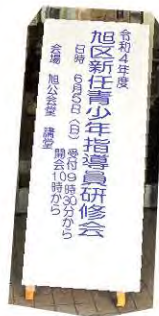 令和4年度
旭区新任青少年指導員研修会
日時 6月5日(日) 受付9時30分から
開会10時から
会場 旭公会堂 講堂